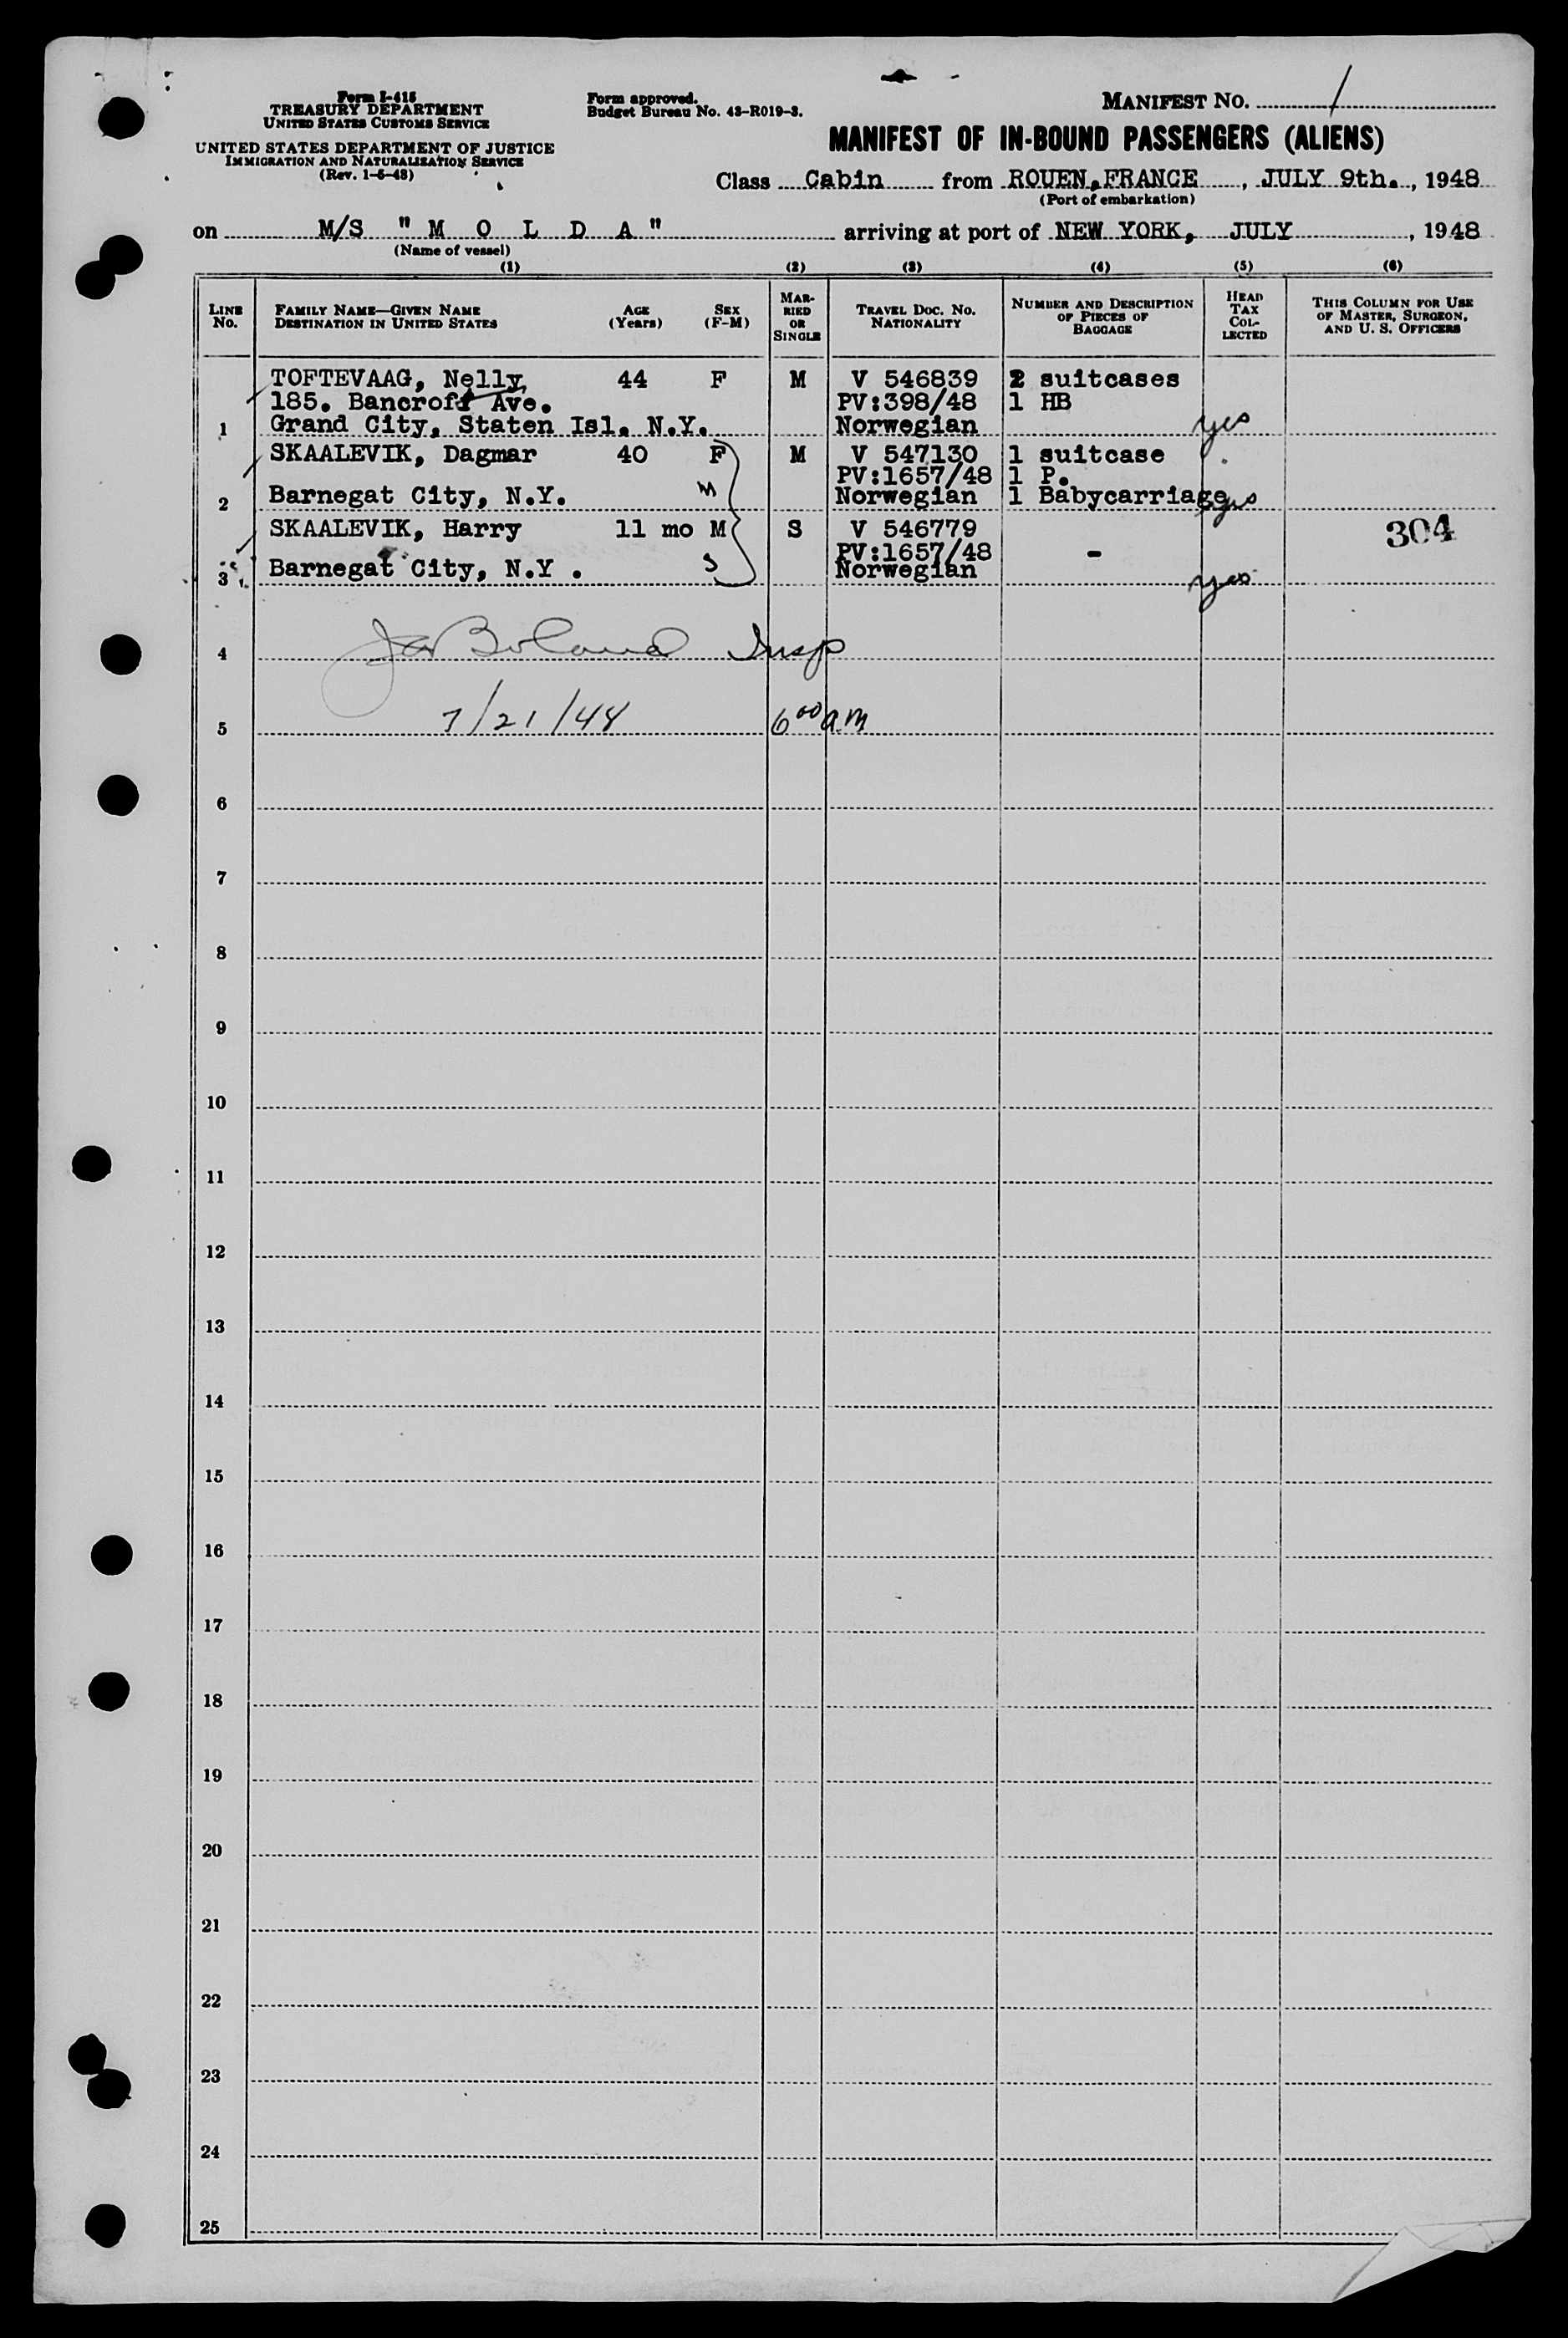 Form I-415
TREASURY DEPARTMENT
UNITED STATES CUSTOMS SERVICE
UNITED STATES DEPARTMENT OF JUSTICE
IMMIGRATION AND NATURALIZATION SERVICE
(Rev. 1-5-48)
Form approved.
Budget Bureau No. 43-R019-3.
MANIFEST NO. 1
MANIFEST OF IN-BOUND PASSENGERS (ALIENS)
Class Cabin from ROUEN, FRANCE, JULY 9th., 1948
(Port of embarkation)
on M/S "M O L D A" arriving at port of NEW YORK, JULY, 1948
(Name of vessel)
(1) (2) (3) (4) (5) (6)
LINE No.
FAMILY NAME—GIVEN NAME
DESTINATION IN UNITED STATES
AGE (Years)
SEX (F-M)
MARRIED OR SINGLE
TRAVEL DOC. NO.
NATIONALITY
NUMBER AND DESCRIPTION OF PIECES OF BAGGAGE
HEAD TAX COLLECTED
THIS COLUMN FOR USE OF MASTER, SURGEON, AND U. S. OFFICERS
TOFTEVAAG, Nelly 44 F M V 546839 2 suitcases
185. Bancroft Ave. PV:398/48 1 HB
1 Grand City, Staten Isl. N.Y. Norwegian yes
SKAALEVIK, Dagmar 40 F M V 547130 1 suitcase
PV:1657/48 1 P.
2 Barnegat City, N.Y. M Norwegian 1 Babycarriage yes
SKAALEVIK, Harry 11 mo M S V 546779 304
PV:1657/48 -
3 Barnegat City, N.Y. S Norwegian yes
4 Boland Insp
5 7/21/48 6 00 a.m
6
7
8
9
10
11
12
13
14
15
16
17
18
19
20
21
22
23
24
25